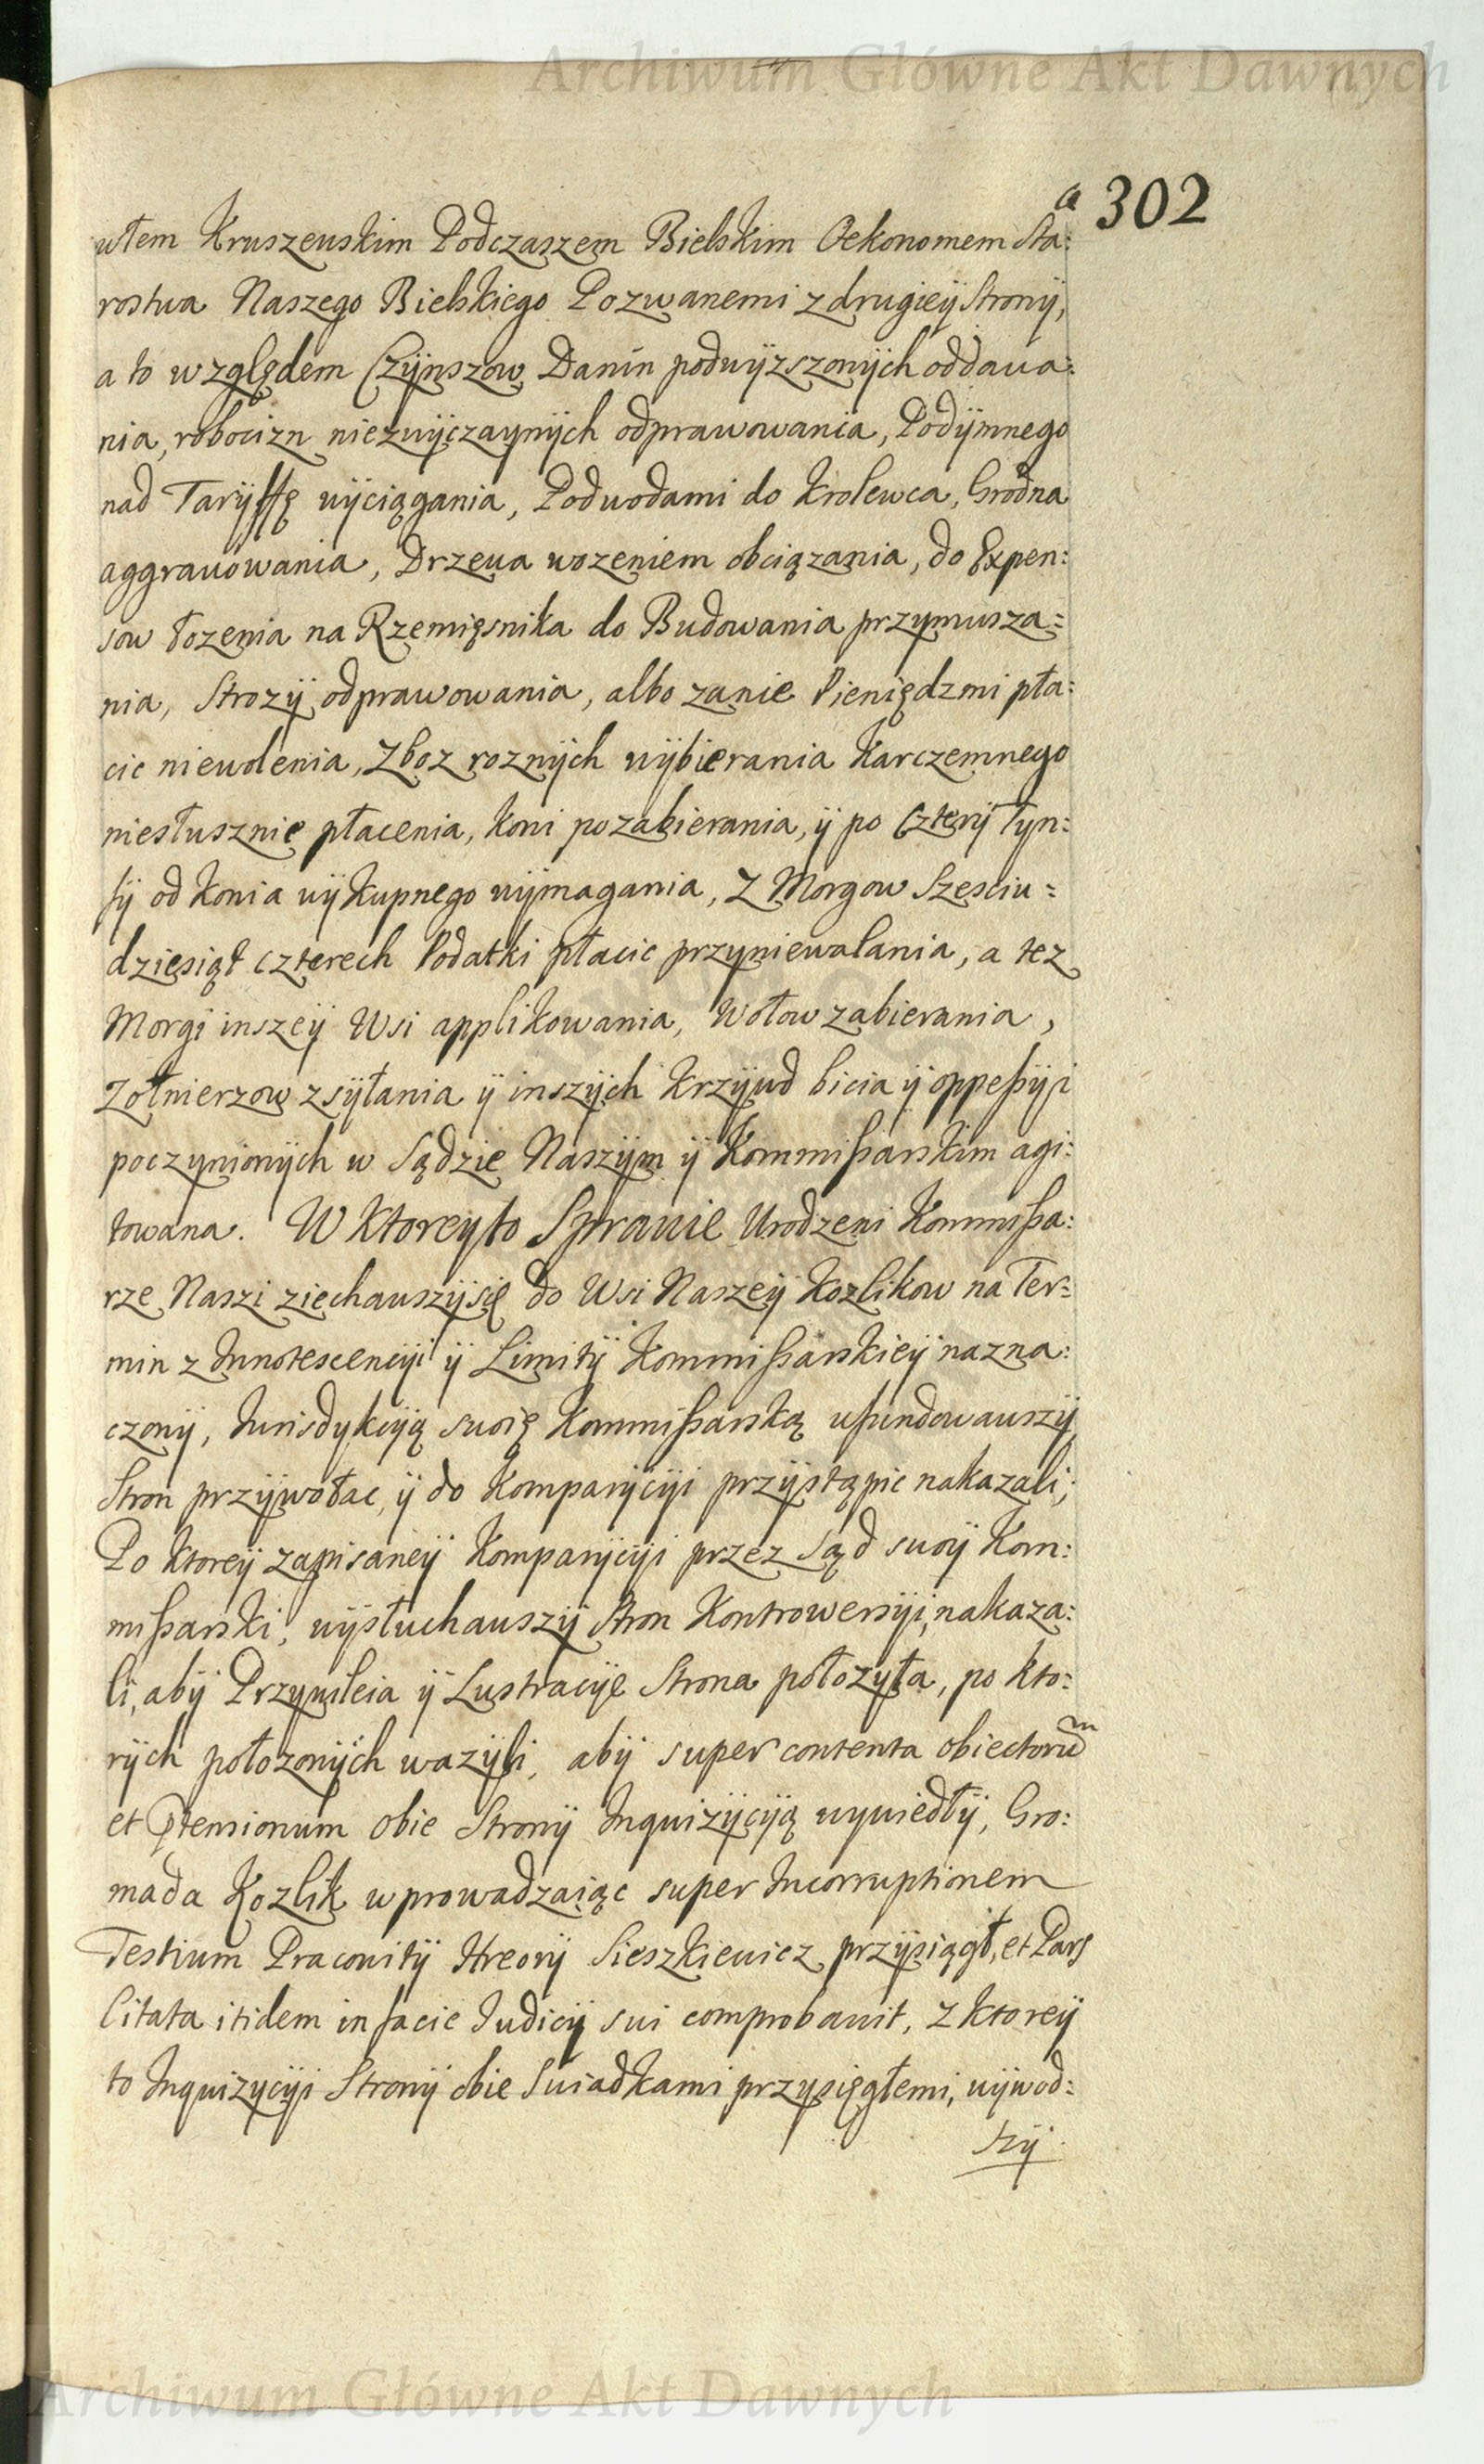 Archiwum Główne Akt Dawnych
a 302
włem Kruszewskim Podczaszem Bielskim Oekonomem Sta:
rostwa Naszego Bielskiego Pozwanemi z drugieÿ Stronÿ,
a to względem Czÿnszow, Danin podwÿzszonÿch oddawa:
nia, robocizn niezwÿczaynÿch odprawowania, Podÿmnego
nad Tarÿffę wÿciągania, Podwodami do Krolewca, Grodna
aggrawowania, Drzewa wozeniem obciązania, do Expen:
sow łozenia na Rzemięsnika do Budowania przymusza:
nia, Strozÿ odprawowania, albo zanie Pieniędzmi pła:
cic niewolenia, Zboz roznÿch wÿbierania Karczemnego
niesłusznie płacenia, koni pozabierania, ÿ po Czterÿ Tyn:
fÿ od konia wÿkupnego wÿmagania, Z Morgow Szesciu:
dziesiąt czterech Podatki płacic przyniewalania, a tez
Morgi inszeÿ Wsi applikowania, Wołow zabierania,
Zołnierzow zsÿłania ÿ inszÿch Krzÿwd bicia ÿ oppeßÿi
poczynionÿch w Sądzie Naszÿm ÿ Kommißarskim agi:
towana. W Ktoreyto Sprawie Urodzeni Kommißa:
rze Naszi ziechawszÿsię do Wsi Naszeÿ Kozlikow na Ter:
min z Innotescencÿi ÿ Limitÿ Kommißarskieÿ nazna:
czonÿ, Jurisdykcÿą swoię Kommißarską ufundowawszÿ,
Stron przÿwołac, ÿ do Komparÿcÿi przÿstąpic nakazali;
Po ktoreÿ zapisaneÿ Komparÿcÿi przez Sąd swoÿ Kom:
mißarski, wÿsłuchawszÿ Stron Kontrowersÿi, nakaza:
li, abÿ Przywileia ÿ Lustracÿe Strona połozyła, po kto:
rÿch połozonÿch wazÿli, abÿ super contenta obiectorũm
et Ptensionum obie Stronÿ Inquizÿcÿą wywiedłÿ, Gro:
mada Kozlik wprowadzaiąc super Incorruptionem
Testium Pracowitÿ Hreorÿ Sieszkiewicz przÿsiągł, et Pars
Citata itidem in facie Iudicÿ sui comprobavit, z ktoreÿ
to Inquizycÿi Stronÿ obie Swiadkami przysięgłemi, wÿwod:
zÿ
Archiwum Główne Akt Dawnych